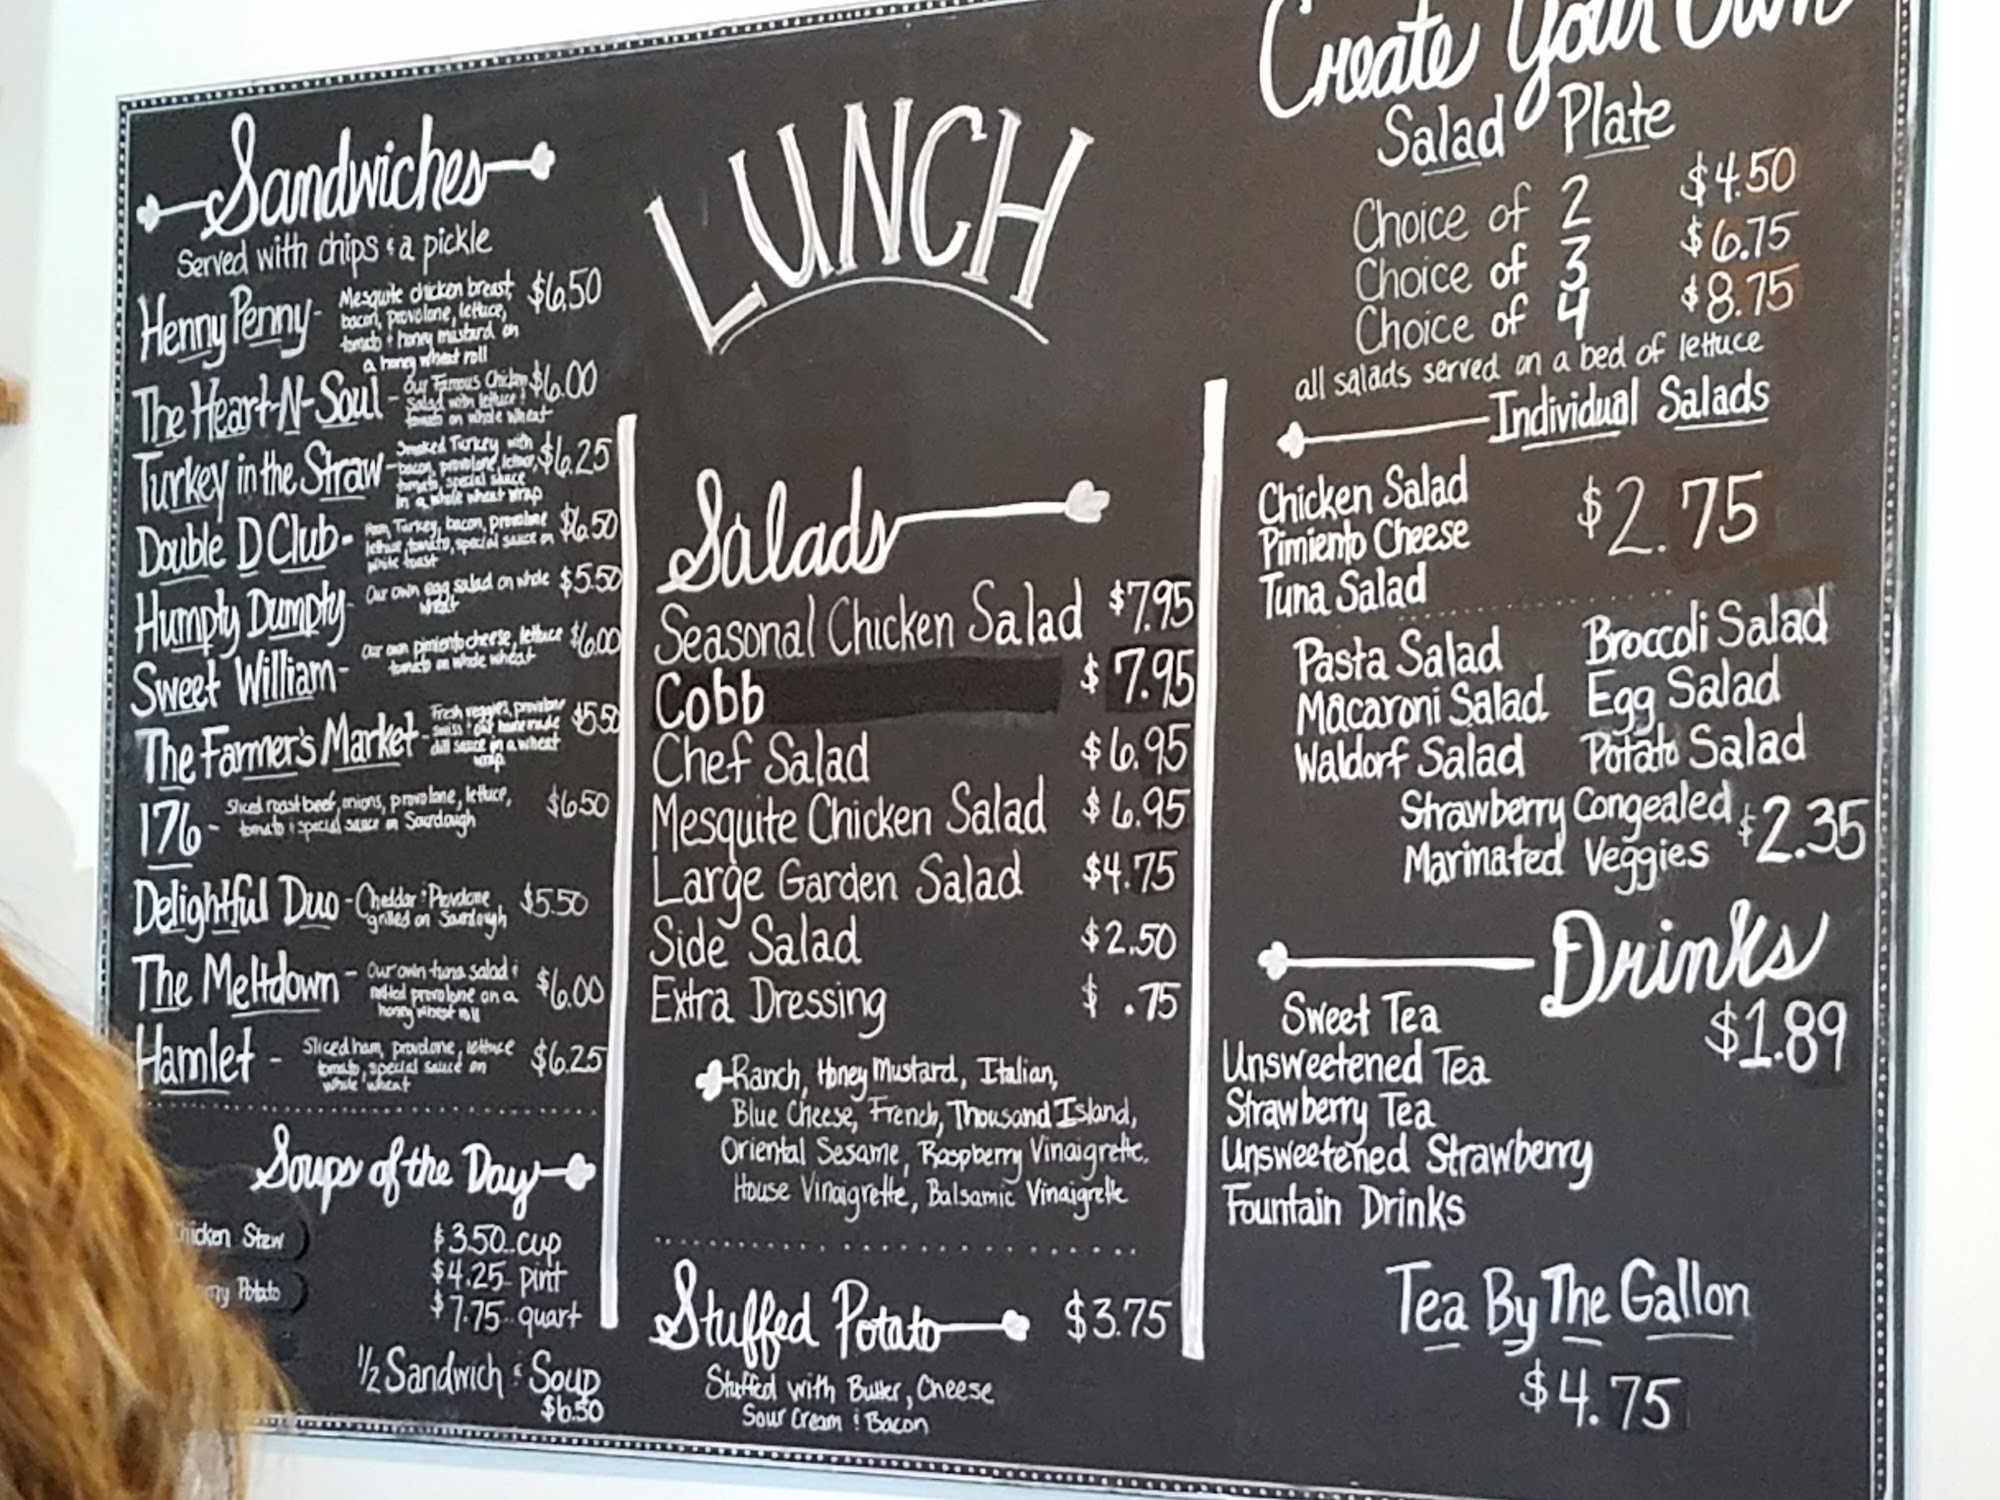 Sandwiches
Served with chips & a pickle
Henny Penny - Mesquite chicken breast, $6.50
bacon, provolone, lettuce,
tomato & honey mustard on
a honey wheat roll
The Heart-N-Soul - Our Famous Chicken $6.00
Salad with lettuce &
tomato on whole wheat
Turkey in the Straw - Smoked Turkey with $6.25
bacon, provolone, lettuce,
tomato, special sauce
in a whole wheat wrap
Double D Club - Ham, Turkey, bacon, provolone $6.50
lettuce, tomato, special sauce on
white toast
Humpty Dumpty - Our own egg salad on whole $5.50
wheat
Sweet William - Our own pimiento cheese, lettuce $6.00
tomato on whole wheat
The Farmer's Market - Fresh veggies, provolone $5.50
swiss & our homemade
dill sauce in a wheat
wrap
176 - Sliced roast beef, onions, provolone, lettuce, $6.50
tomato & special sauce on Sourdough
Delightful Duo - Cheddar & Provolone $5.50
grilled on Sourdough
The Meltdown - Our own tuna salad & $6.00
melted provolone on a
honey wheat roll
Hamlet - Sliced ham, provolone, lettuce $6.25
tomato, special sauce on
whole wheat
Soups of the Day
Chicken Stew
Potato
$3.50 cup
$4.25 pint
$7.75 quart
1/2 Sandwich & Soup
$6.50
LUNCH
Salads
Seasonal Chicken Salad $7.95
Cobb $7.95
Chef Salad $6.95
Mesquite Chicken Salad $6.95
Large Garden Salad $4.75
Side Salad $2.50
Extra Dressing $.75
Ranch, Honey Mustard, Italian,
Blue Cheese, French, Thousand Island,
Oriental Sesame, Raspberry Vinaigrette,
House Vinaigrette, Balsamic Vinaigrette
Stuffed Potato $3.75
Stuffed with Butter, Cheese
Sour Cream & Bacon
Create Your Own
Salad Plate
Choice of 2 $4.50
Choice of 3 $6.75
Choice of 4 $8.75
all salads served on a bed of lettuce
Individual Salads
Chicken Salad
Pimiento Cheese
Tuna Salad
$2.75
Pasta Salad Broccoli Salad
Macaroni Salad Egg Salad
Waldorf Salad Potato Salad
Strawberry Congealed
Marinated Veggies
$2.35
Drinks
$1.89
Sweet Tea
Unsweetened Tea
Strawberry Tea
Unsweetened Strawberry
Fountain Drinks
Tea By The Gallon
$4.75